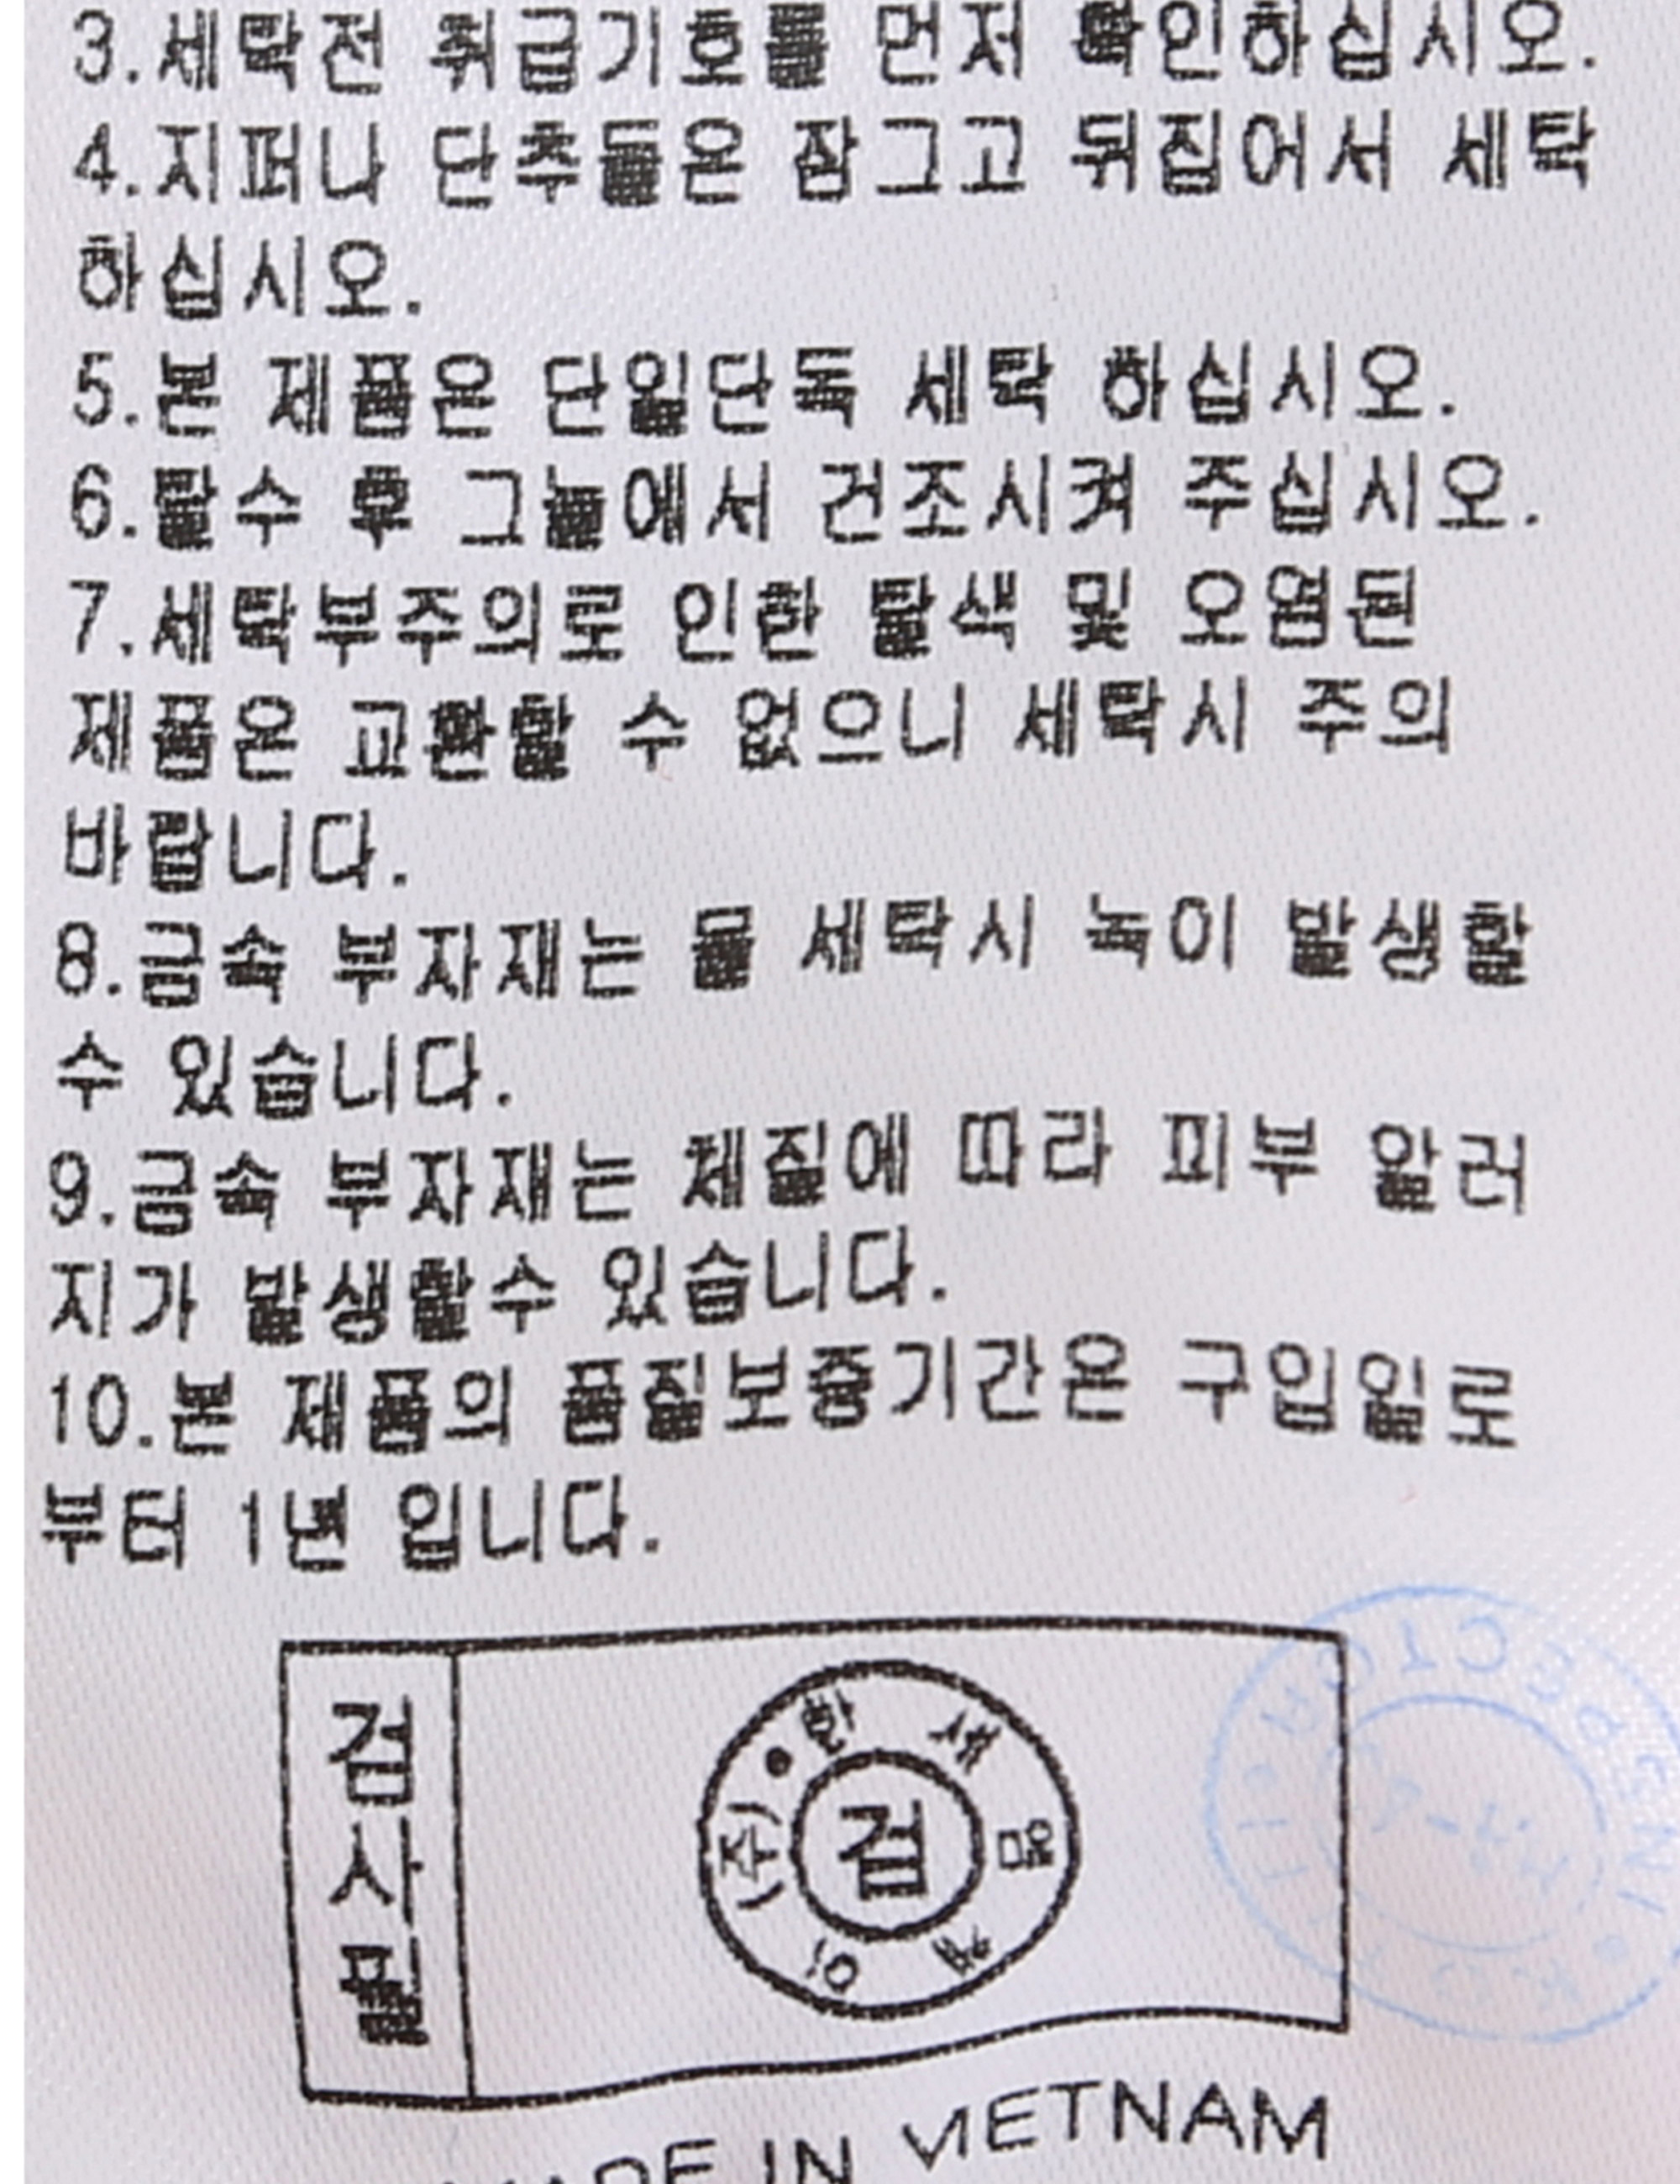 3.세탁전 취급기호를 먼저 확인하십시오.
4.지퍼나 단추들은 잠그고 뒤집어서 세탁
하십시오.
5.본 제품은 단일단독 세탁 하십시오.
6.탈수 후 그늘에서 건조시켜 주십시오.
7.세탁부주의로 인한 탈색 및 오염된
제품은 교환할 수 없으니 세탁시 주의
바랍니다.
8.금속 부자재는 물 세탁시 녹이 발생할
수 있습니다.
9.금속 부자재는 체질에 따라 피부 알러
지가 발생할수 있습니다.
10.본 제품의 품질보증기간은 구입일로
부터 1년 입니다.
검사필
(주)•한세엠케이
검
MADE IN VIETNAM